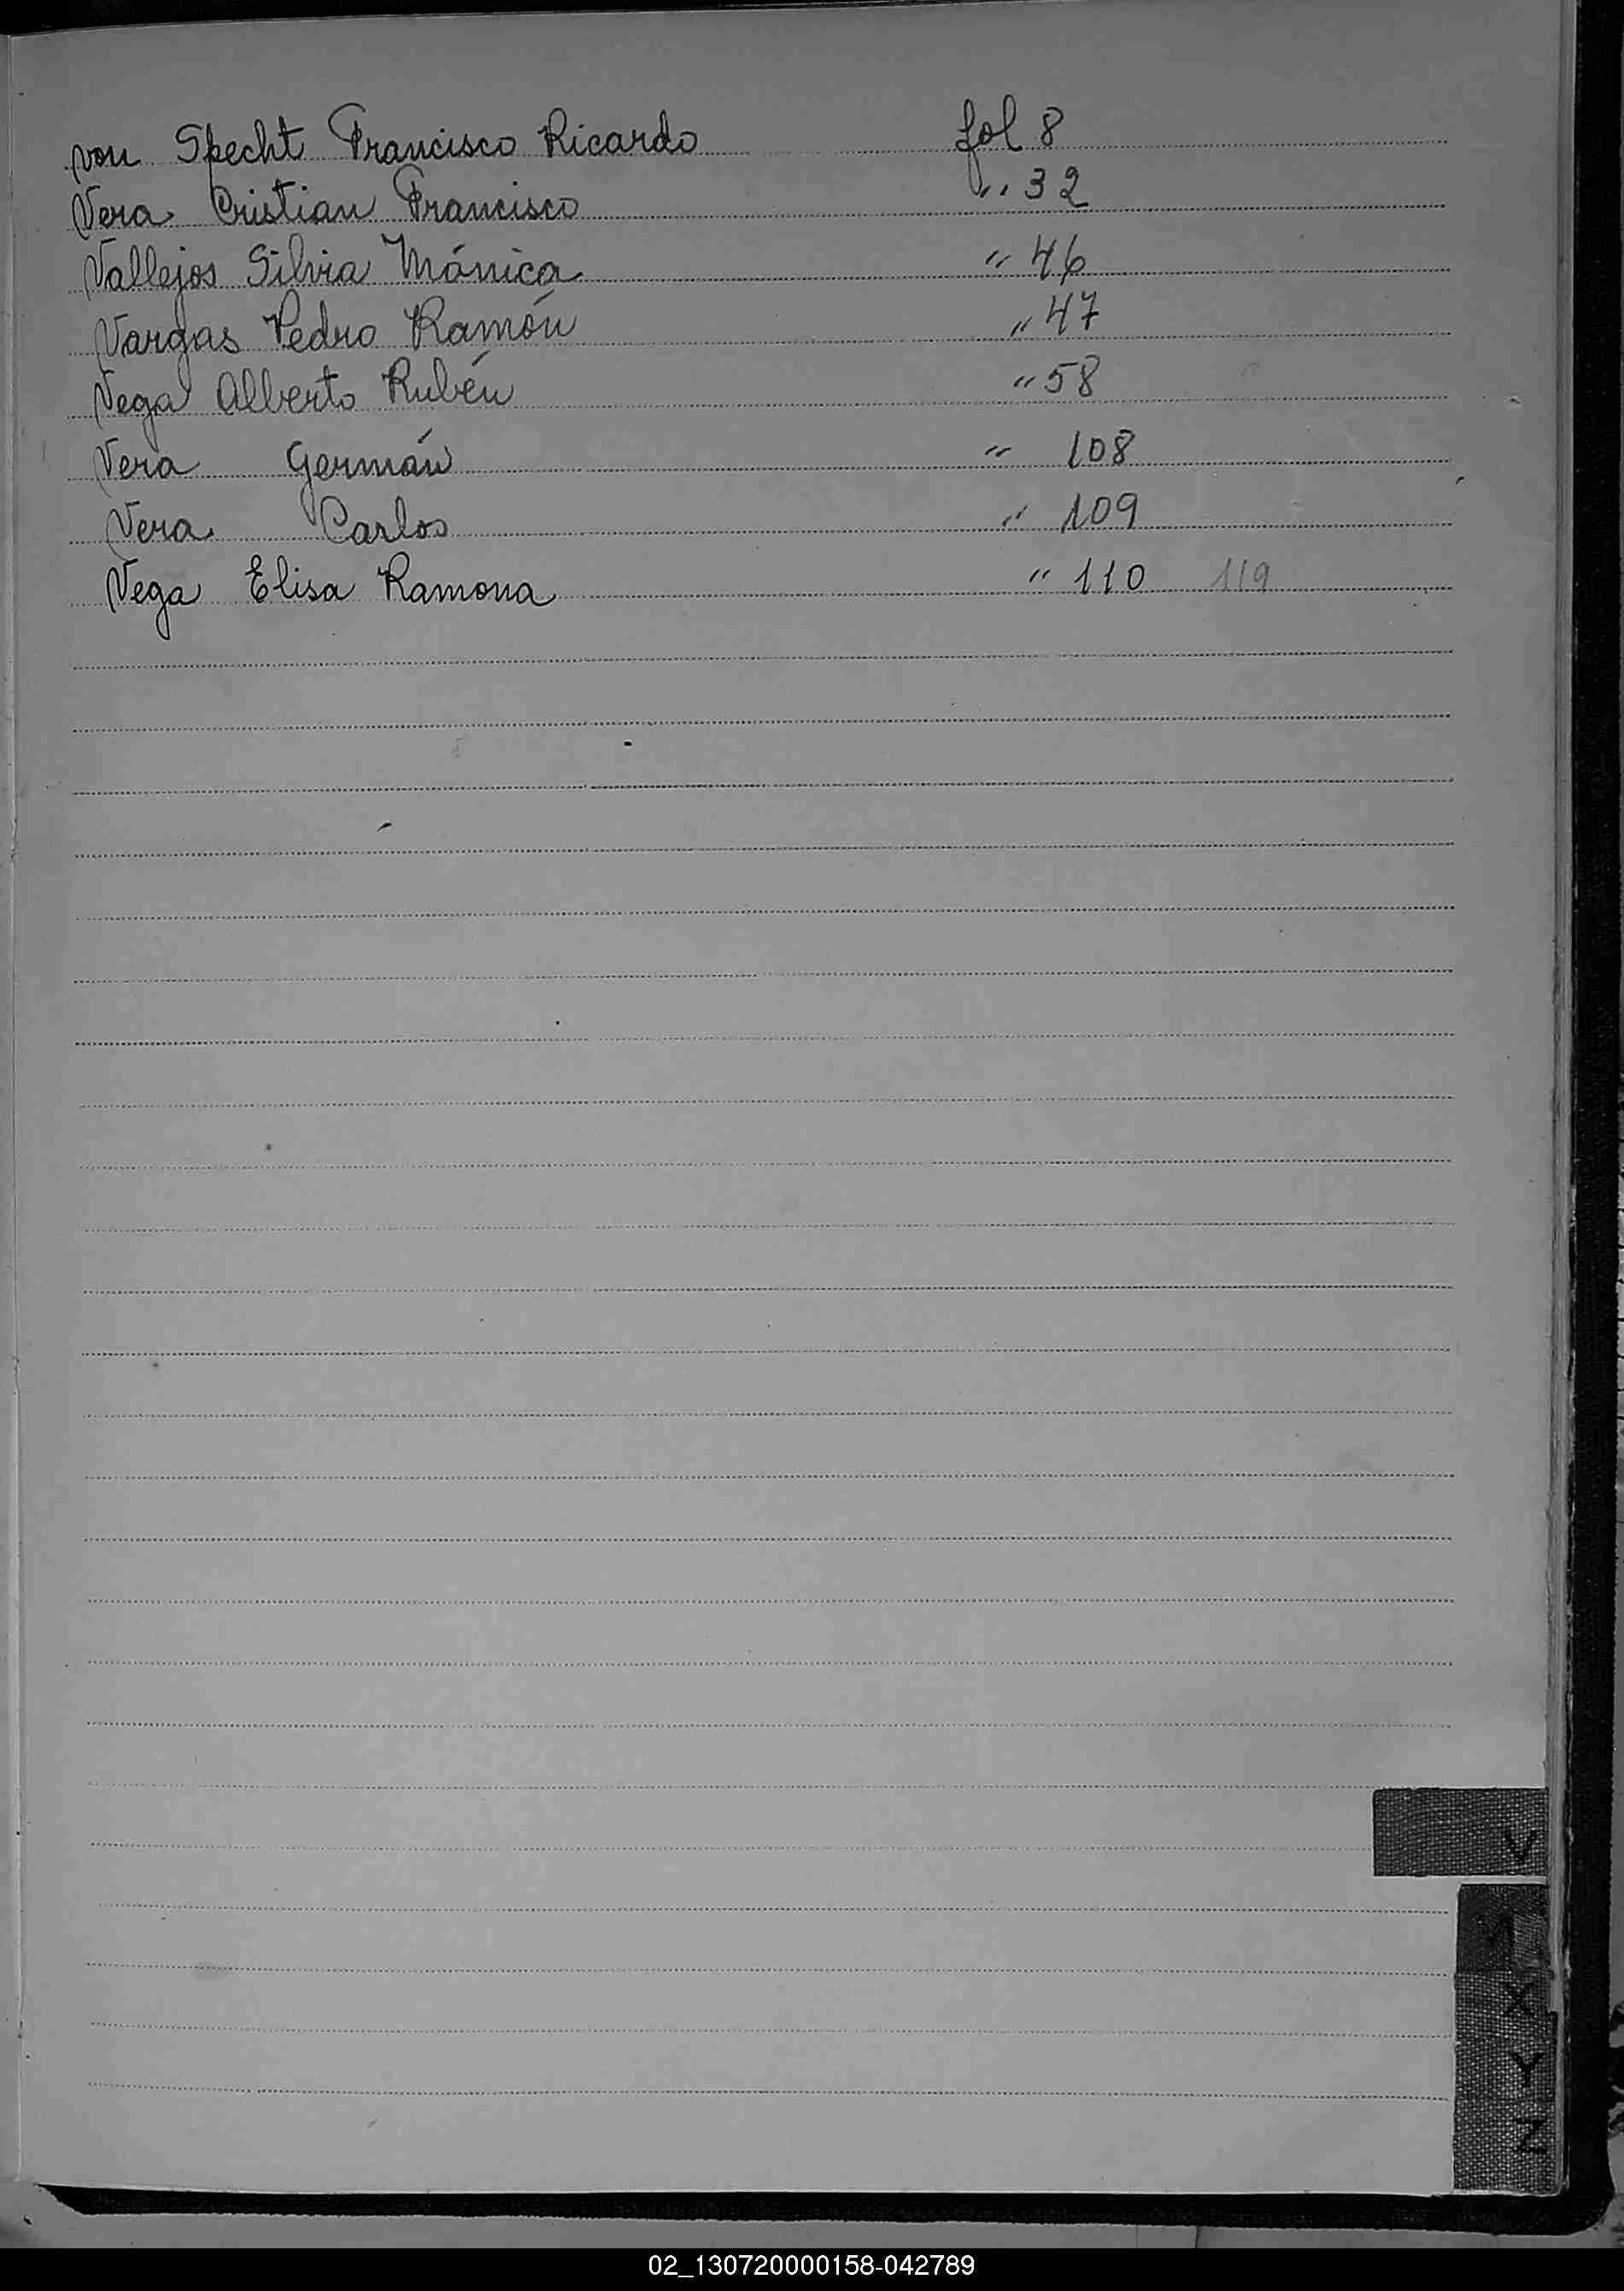 von Specht Francisco Ricardo fol 8
Vera Cristian Francisco " 32
Vallejos Silvia Mónica " 46
Vargas Pedro Ramón " 47
Vega Alberto Rubén " 58
Vera Germán " 108
Vera Carlos " 109
Vega Elisa Ramona " 110 119
V
X
Y
Z
02_130720000158-042789